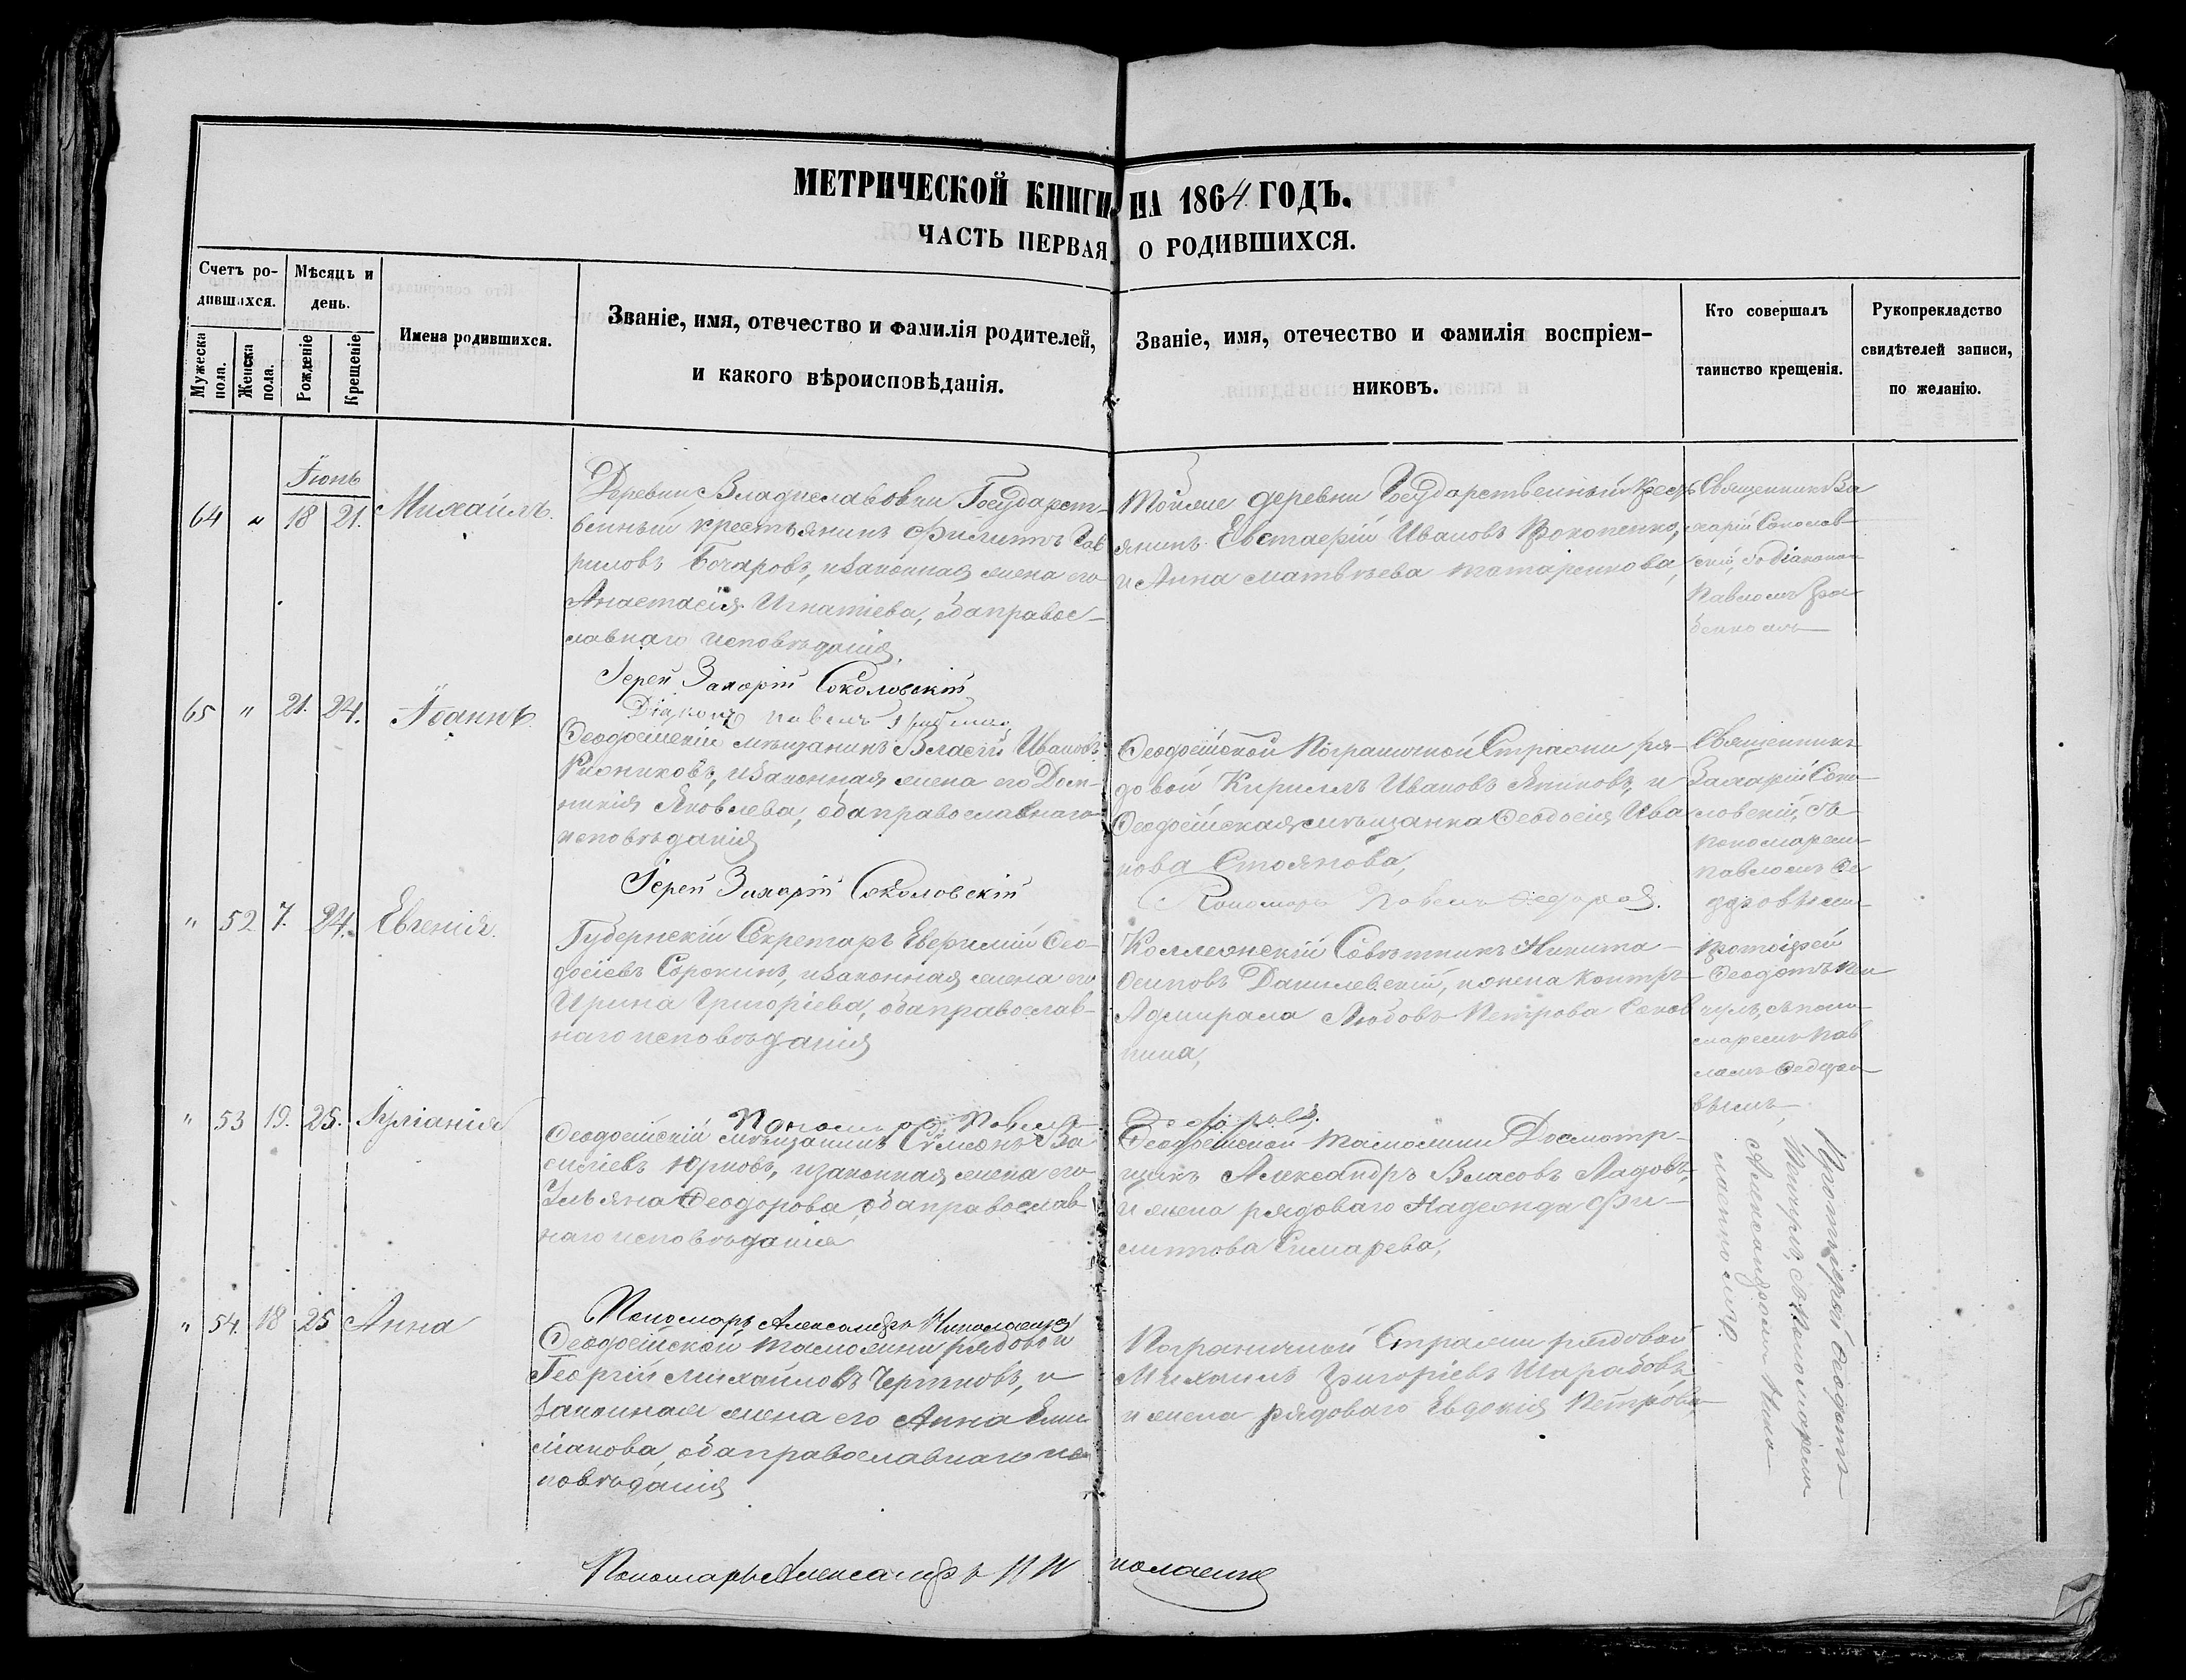 МЕТРИЧЕСКОЙ КНИГИ НА 1864 ГОДЪ.
ЧАСТЬ ПЕРВАЯ О РОДИВШИХСЯ.
Счетъ ро-
дившихся.
Мужеска пола.
Женска пола.
Мѣсяць и
день.
Рожденіе
Крещеніе
Имена родившихся.
Званіе, имя, отечество и фамилія родителей,
и какого вѣроисповѣданія.
Званіе, имя, отечество и фамилія воспріем-
никовъ.
Кто совершалъ
таинство крещенія.
Рукопрекладство
свидѣтелей записи,
по желанію.
Іюнь
64 " 18 21. Михаилъ.
Деревни Владиславовки Государст-
венный крестьянинъ Филиппъ Гав
риловъ Бочаровъ, и законная жена его
Анастасія Игнатіева, оба православ-
славнаго исповѣданія
Іерей Захарій Соколовскій
Діаконъ Павелъ
Тойже деревни Государственный крест
янинъ Евстафій Ивановъ Прокопенко,
и Анна Матвѣева Татаренкова,
Священникъ За
харій Соколов-
скій, съ Діакономъ
Павломъ Гра-
бенкомъ
65 " 21. 24. Іоаннъ.
Феодосійскій мѣщанинъ Власій Ивановъ
Резниковъ, и законная жена его Дом-
никія Яковлева, оба православнаго
исповѣданія
Іерей Захарій Соколовскій
Феодосійской Пограничной Стражи ря-
довой Кириллъ Ивановъ Яниковъ, и
Феодосійская мѣщанка Феодосія Ива
нова Стоянова,
Пономарь Павелъ Федоровъ.
Священникъ
Захарій Соко-
ловскій, съ
пономаремъ
Павломъ Фе
доровымъ
" 52 7. 24. Евгенія.
Губернскій Секретарь Евфимій Фео-
досіевъ Сорокинъ, и законная жена его
Ирина Григоріева, оба православ-
наго исповѣданія
Пономарь Павелъ Федоровъ.
Коллежскій Совѣтникъ Никита
Осиповъ Данилевскій, и жена Контръ-
Адмирала Любовь Петрова
нина,
Протоіерей
Феодотъ
съ поно-
маремъ Пав
ломъ Федоро-
вымъ
" 53 19. 25. Іуліанія
Феодосійскій мѣщанинъ Симеонъ Ва
силіевъ Юрковъ, и законная жена его
Ульяна Феодорова, оба православ
наго исповѣданія
Пономарь Александръ Николаенко
Феодосійской Таможни Досмотр-
щикъ Александръ Власовъ Ладовъ,
и жена рядоваго Надежда Фи-
липпова
Протоіерей Феодотъ
съ Пономаремъ
Александромъ Нико-
лаенкомъ.
" 54. 18 25 Анна
Феодосійской Таможни рядовой
Георгій Михайловъ Черниковъ, и
законная жена его Анна Еми
ліанова, оба православнаго ис
повѣданія
Пограничной Стражи рядовой
Михаилъ Григоріевъ Шарабовъ,
и жена рядоваго Евдокія Петрова
Пономарь Александръ Николаенко